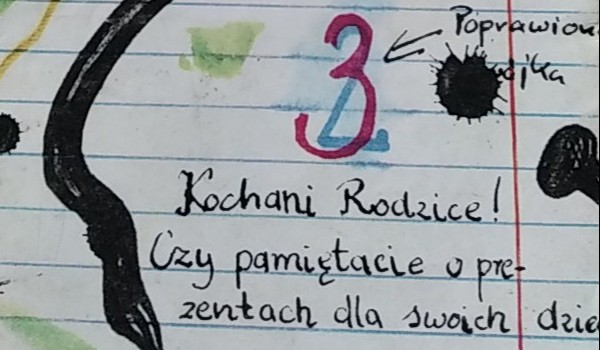 3
Poprawion
Kochani Rodzice!
Czy pamiętacie o pre-
zentach dla swoich dzie